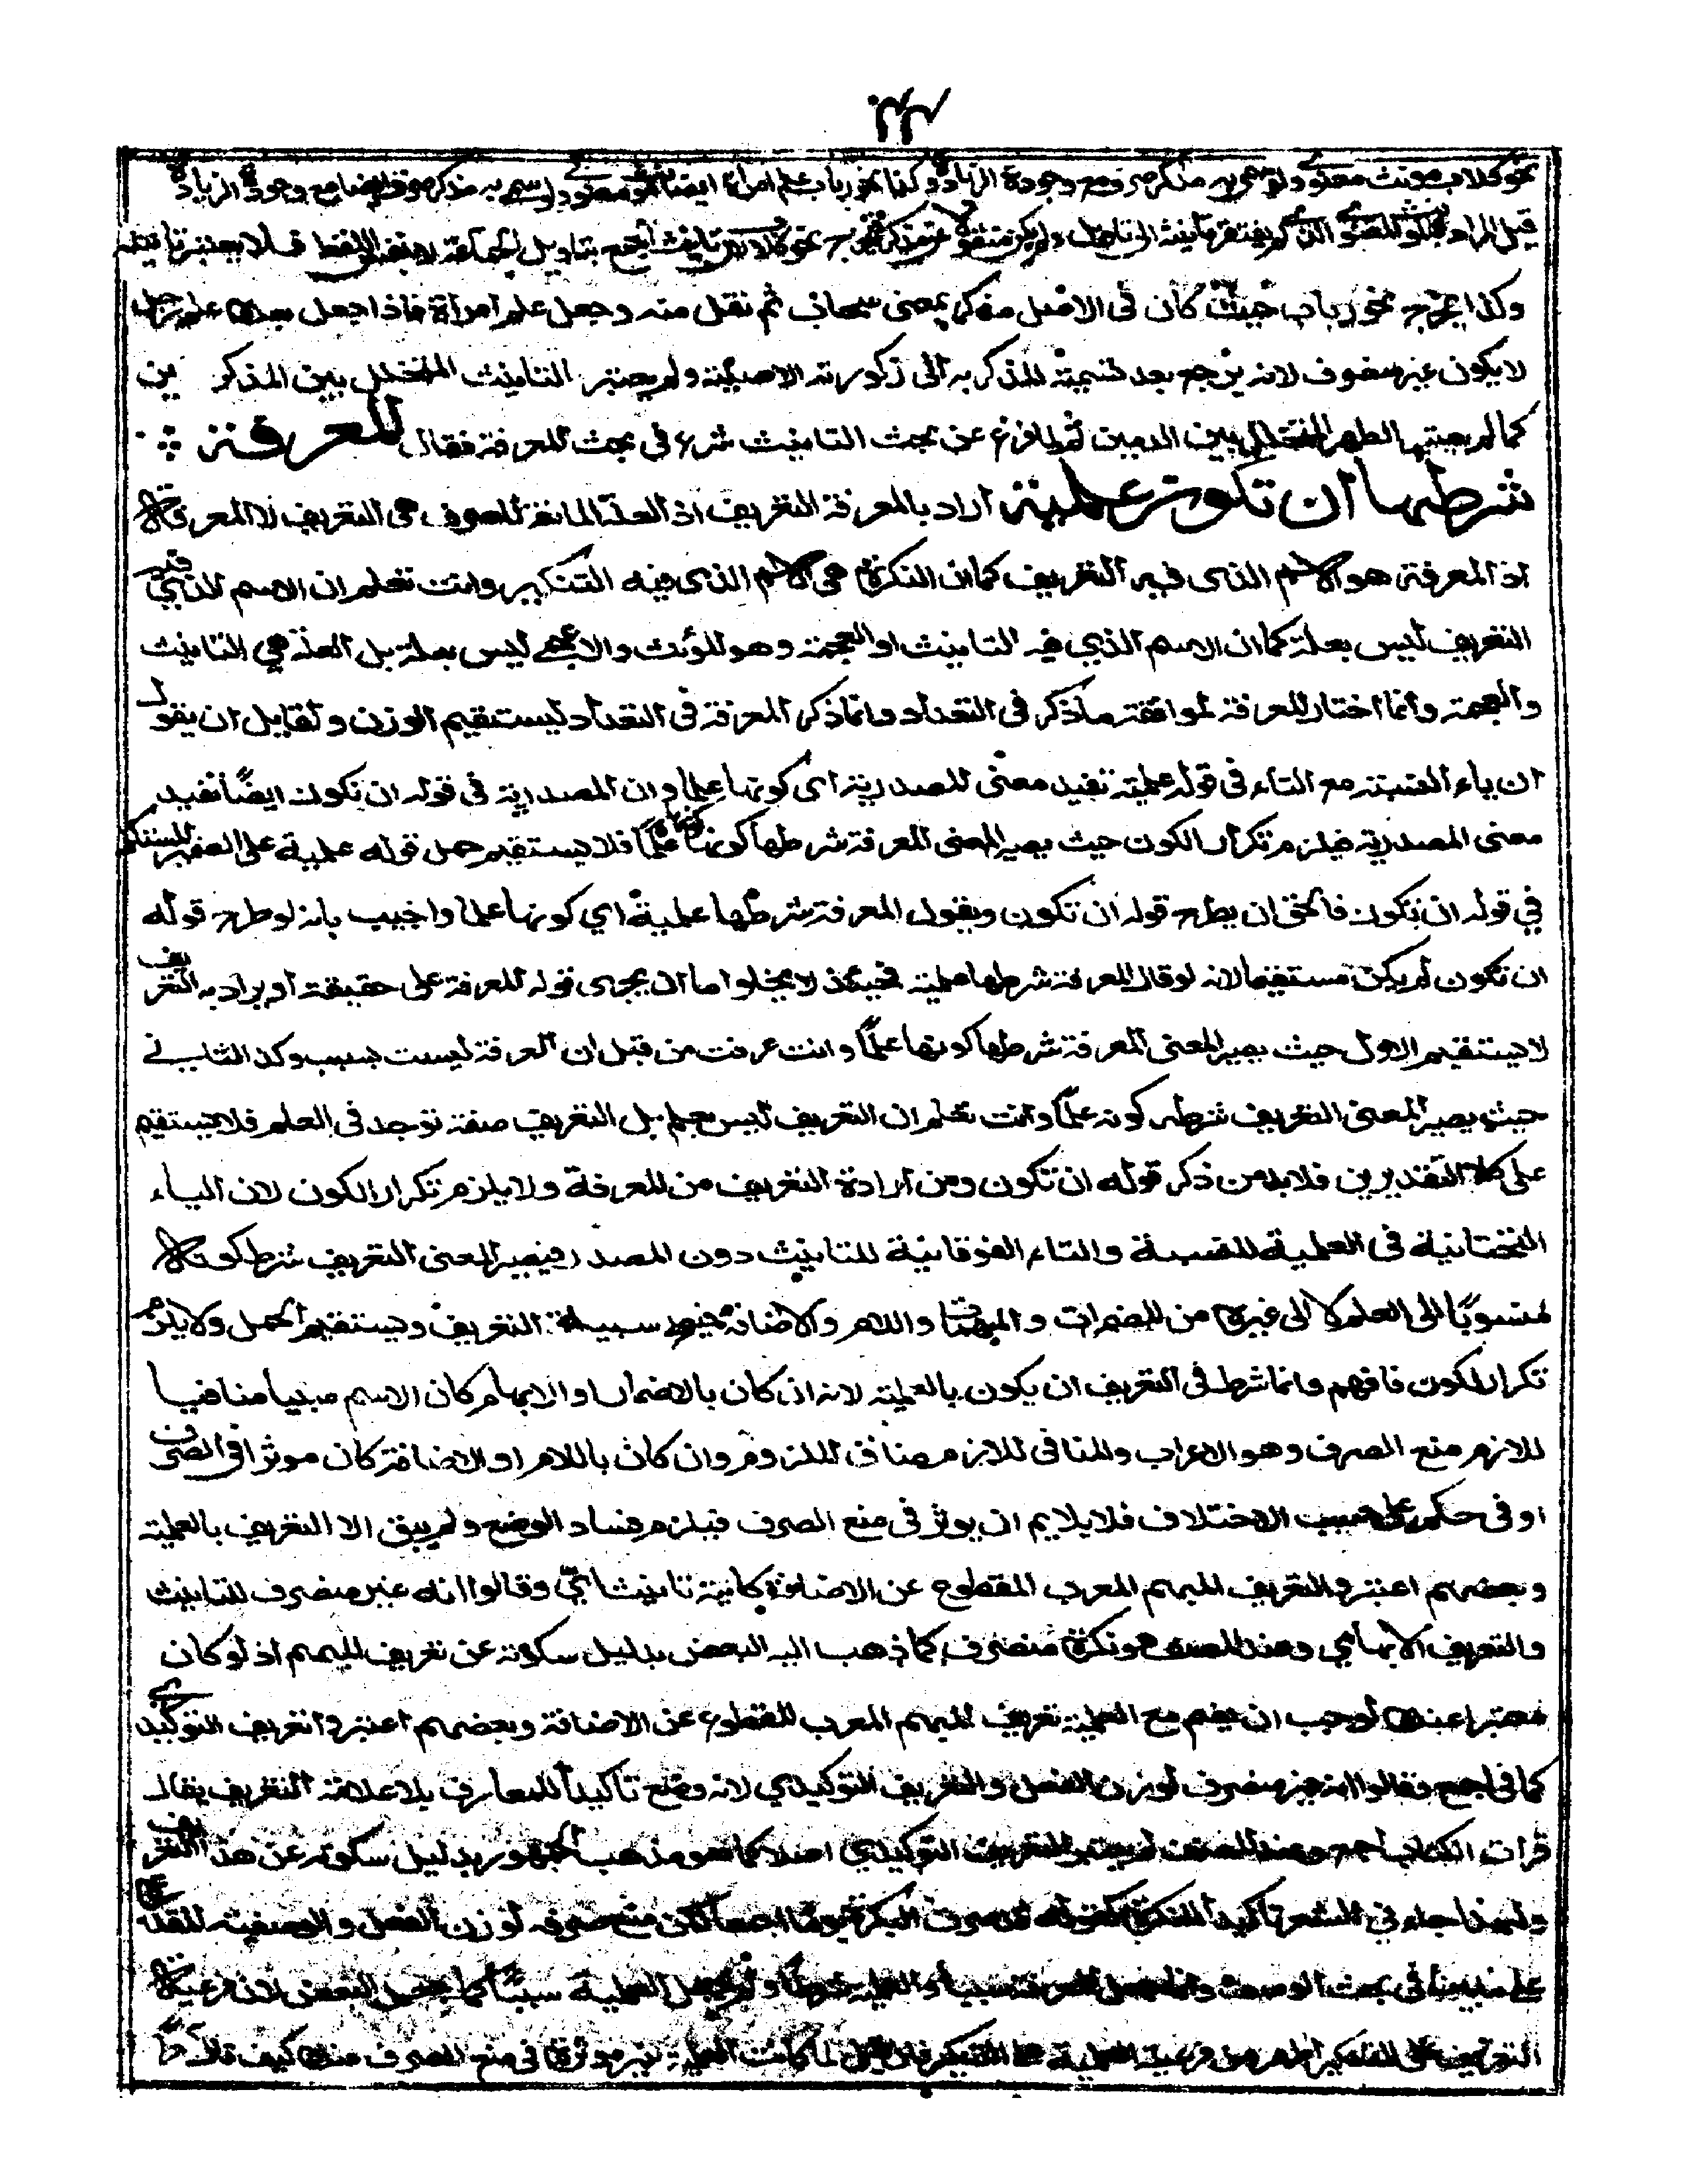 نحو كلاب مونث معنوي ولو سمي به مذكر صرف مع وجود الزيادة وكذا نحو رباب علم امراة ايضا مونث معنوي ولو سمي به مذكر صرف ايضا مع وجود الزيادة
قيل المراد بالمونث المعنوي الذي لم يفتقر تانيثه الى تاويل ولم يكن منقولا عن مذكر فخرج نحو كلاب لان تانيث الجمع بتاويل الجماعة لا بنفس اللفظ فلا يعتبر تانيثه
وكذا يخرج نحو رباب حيث كان في الاصل مذكر بمعنى سحاب ثم نقل منه وجعل علم امرأة فاذا جعل بعده علم رجل
لا يكون غير منصرف لانه يرجع بعد تسمية المذكر به الى ذكورته الاصلية ولم يعتبر التانيث المتخلل بين المذكر ين
كما لم يعتبر الطهر المتخلل بين الدمين ثم لما فرغ عن بحث التانيث شرع في بحث المعرفة فقال المعرفة
شرطها ان تكون علمية اراد بالمعرفة التعريف اذ العلة المانعة للصرف هى التعريف لا المعرفة
اذ المعرفة هو الاسم الذى فيه التعريف كما ان النكرة هى الاسم الذى فيه التنكير وانت تعلم ان الاسم الذي فيه
التعريف ليس بعلة كما ان الاسم الذي فيه التانيث او العجمة وهو المؤنث والاعجمي ليس بعلة بل العلة هي التانيث
والعجمة وانما اختار المعرفة لموافقته ما ذكر فى التعداد وانما ذكر المعرفة فى التعداد ليستقيم الوزن ولقايل ان يقول
ان ياء النسبة مع التاء فى قوله علمية تفيد معنى المصدرية اى كونها علما وان المصدرية فى قوله ان تكون ايضًا تفيد
معنى المصدرية فيلزم تكرار الكون حيث يصير المعنى المعرفة شرطها كونها كونها علمًا فلا يستقيم حمل قوله علمية على الضمير المستكن
في قوله ان تكون فالحق ان يطرح قوله ان تكون ويقول المعرفة شرطها علمية اي كونها علما واجيب بانه لو طرح قوله
ان تكون لم يكن مستقيما لانه لو قال المعرفة شرطها علمية فحينئذ لا يخلوا اما ان يجرى قوله المعرفة على حقيقته او يراد به التعريف
لا يستقيم الاول حيث يصير المعنى المعرفة شرطها كونها علمًا وانت عرفت من قبل ان المعرفة ليست بسبب وكذا الثاني
حيث يصير المعنى التعريف شرطه كونه علمًا وانت تعلم ان التعريف ليس بعلم بل التعريف صفة توجد فى العلم فلا يستقيم
على كلا التقديرين فلا بد من ذكر قوله ان تكون ومن ارادة التعريف من المعرفة ولا يلزم تكرار الكون لان الياء
التحتانية فى العلمية للنسبة والتاء الفوقانية للتانيث دون المصدر فيصير المعنى التعريف شرط كونه
منسوبًا الى العلم لا الى غيره من المضمرات والمبهمات واللام والاضافة سببية التعريف ويستقيم الحمل ولا يلزم
تكرار الكون فافهم وانما شرط فى التعريف ان يكون بالعلمية لانه ان كان بالاضمار او الابهام كان الاسم مبنيا منافيا
للازم منع الصرف وهو الاعراب والمنافى للازم مناف للملزوم وان كان باللام او الاضافة كان موثرا فى الصرف
او فى حكمه على حسب الاختلاف فلا يلايم ان يوثر فى منع الصرف فيلزم فساد الوضع ولم يبق الا التعريف بالعلمية
وبعضهم اعتبروا التعريف المبهم المعرب المقطوع عن الاضافة كاية تانيث اىّ وقالوا انه غير منصرف للتانيث
والتعريف الابهامي وعند المصنف هو نكرة منصرف كما ذهب اليه البعض بدليل سكوته عن تعريف المبهم اذ لو كان
معتبرا عنده لوجب ان يضم مع العلمية تعريف المبهم المعرب المقطوع عن الاضافة وبعضهم اعتبروا تعريف التوكيدي
كما فى اجمع وقالوا انه غير منصرف لوزن الفعل والتعريف التوكيدي لانه وضع تاكيدا للمعارف بلا علامة التعريف يقال
قرات الكتاب اجمع وعند المصنف لم يعتبر التعريف التوكيدي اصلا كما هو مذهب الجمهور بدليل سكوته عن هذا التعريف
ولهذا جاء في الشعر تاكيدا للنكرة كقوله قد صرت البكرة يوما اجمعا لكن منع صرفه لوزن الفعل والوصفية
على ما بينا فى بحث الوصف وانما جعل المعرفة سببا والعلمية شرطا ولم يجعل العلمية سببًا كما جعل البعض لان فرعية
التعريف على التنكير اظهر من فرعية العلمية فان قيل لما كانت العلمية غير موثرة فى منع الصرف عنده كيف قال